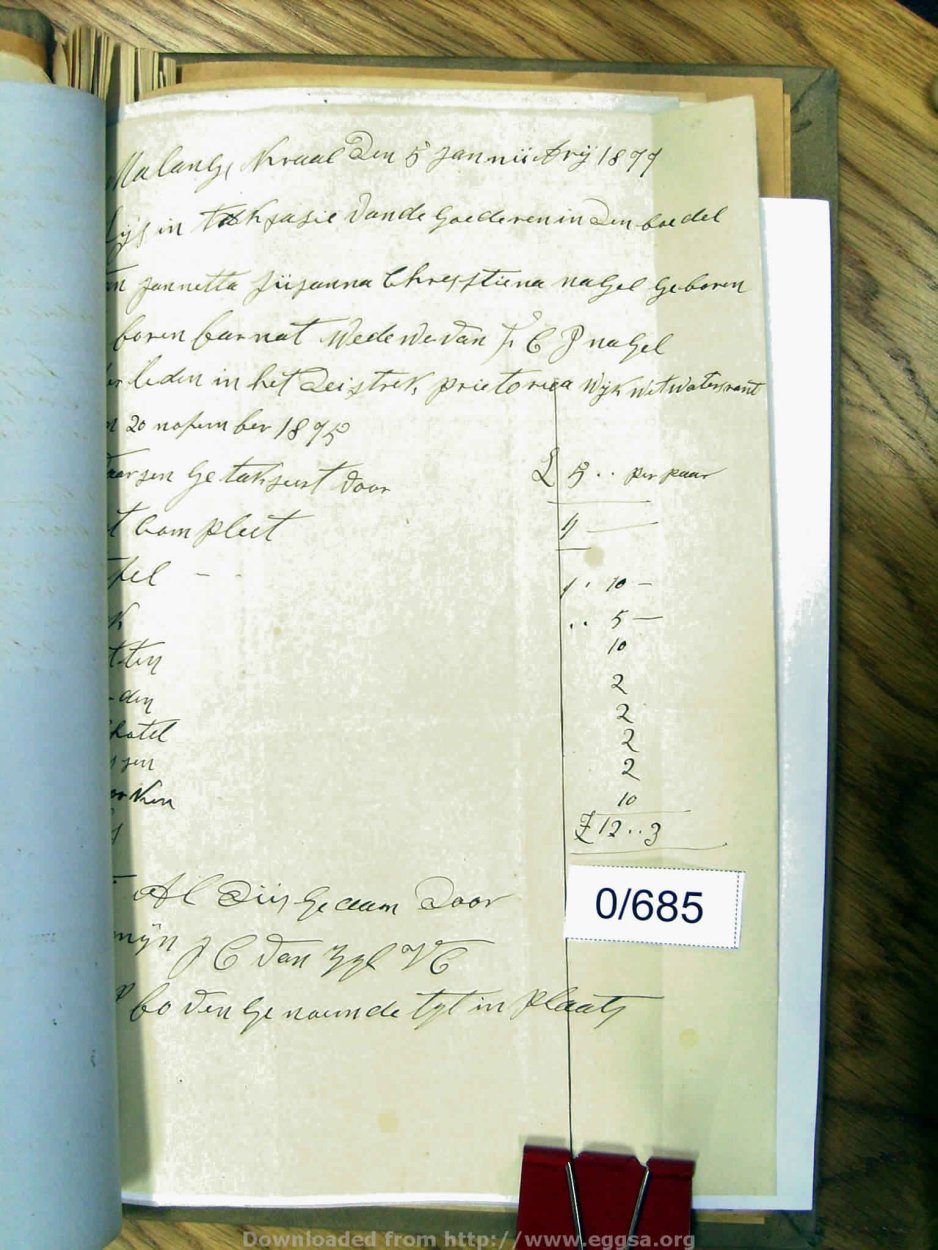 Malangs Kraal Den 5 Jannuarij 1877
Lijs in Takxasie Vande Goederen in Den boedel
an Jannetta Susanna Chresstiena nagel Geboren
boren barnat Wedewe Van F C J nagel
er leden in het Deistrek prietoriea Wijk Witwatersrant
n 20 nofember 1875
aarsen Getakseert door £ 5 .. per paar
t Compleet 4
fel - 1 . 10 -
k .. 5 -
tten 10
den 2
hotel 2
ssen 2
2
orken 10
£ 12 .. 3
Al Dus Gedaan Door
mijn J C Van Zyl VC
p boven Genoemde tyt in plaats
0/685
Downloaded from http://www.eggsa.org